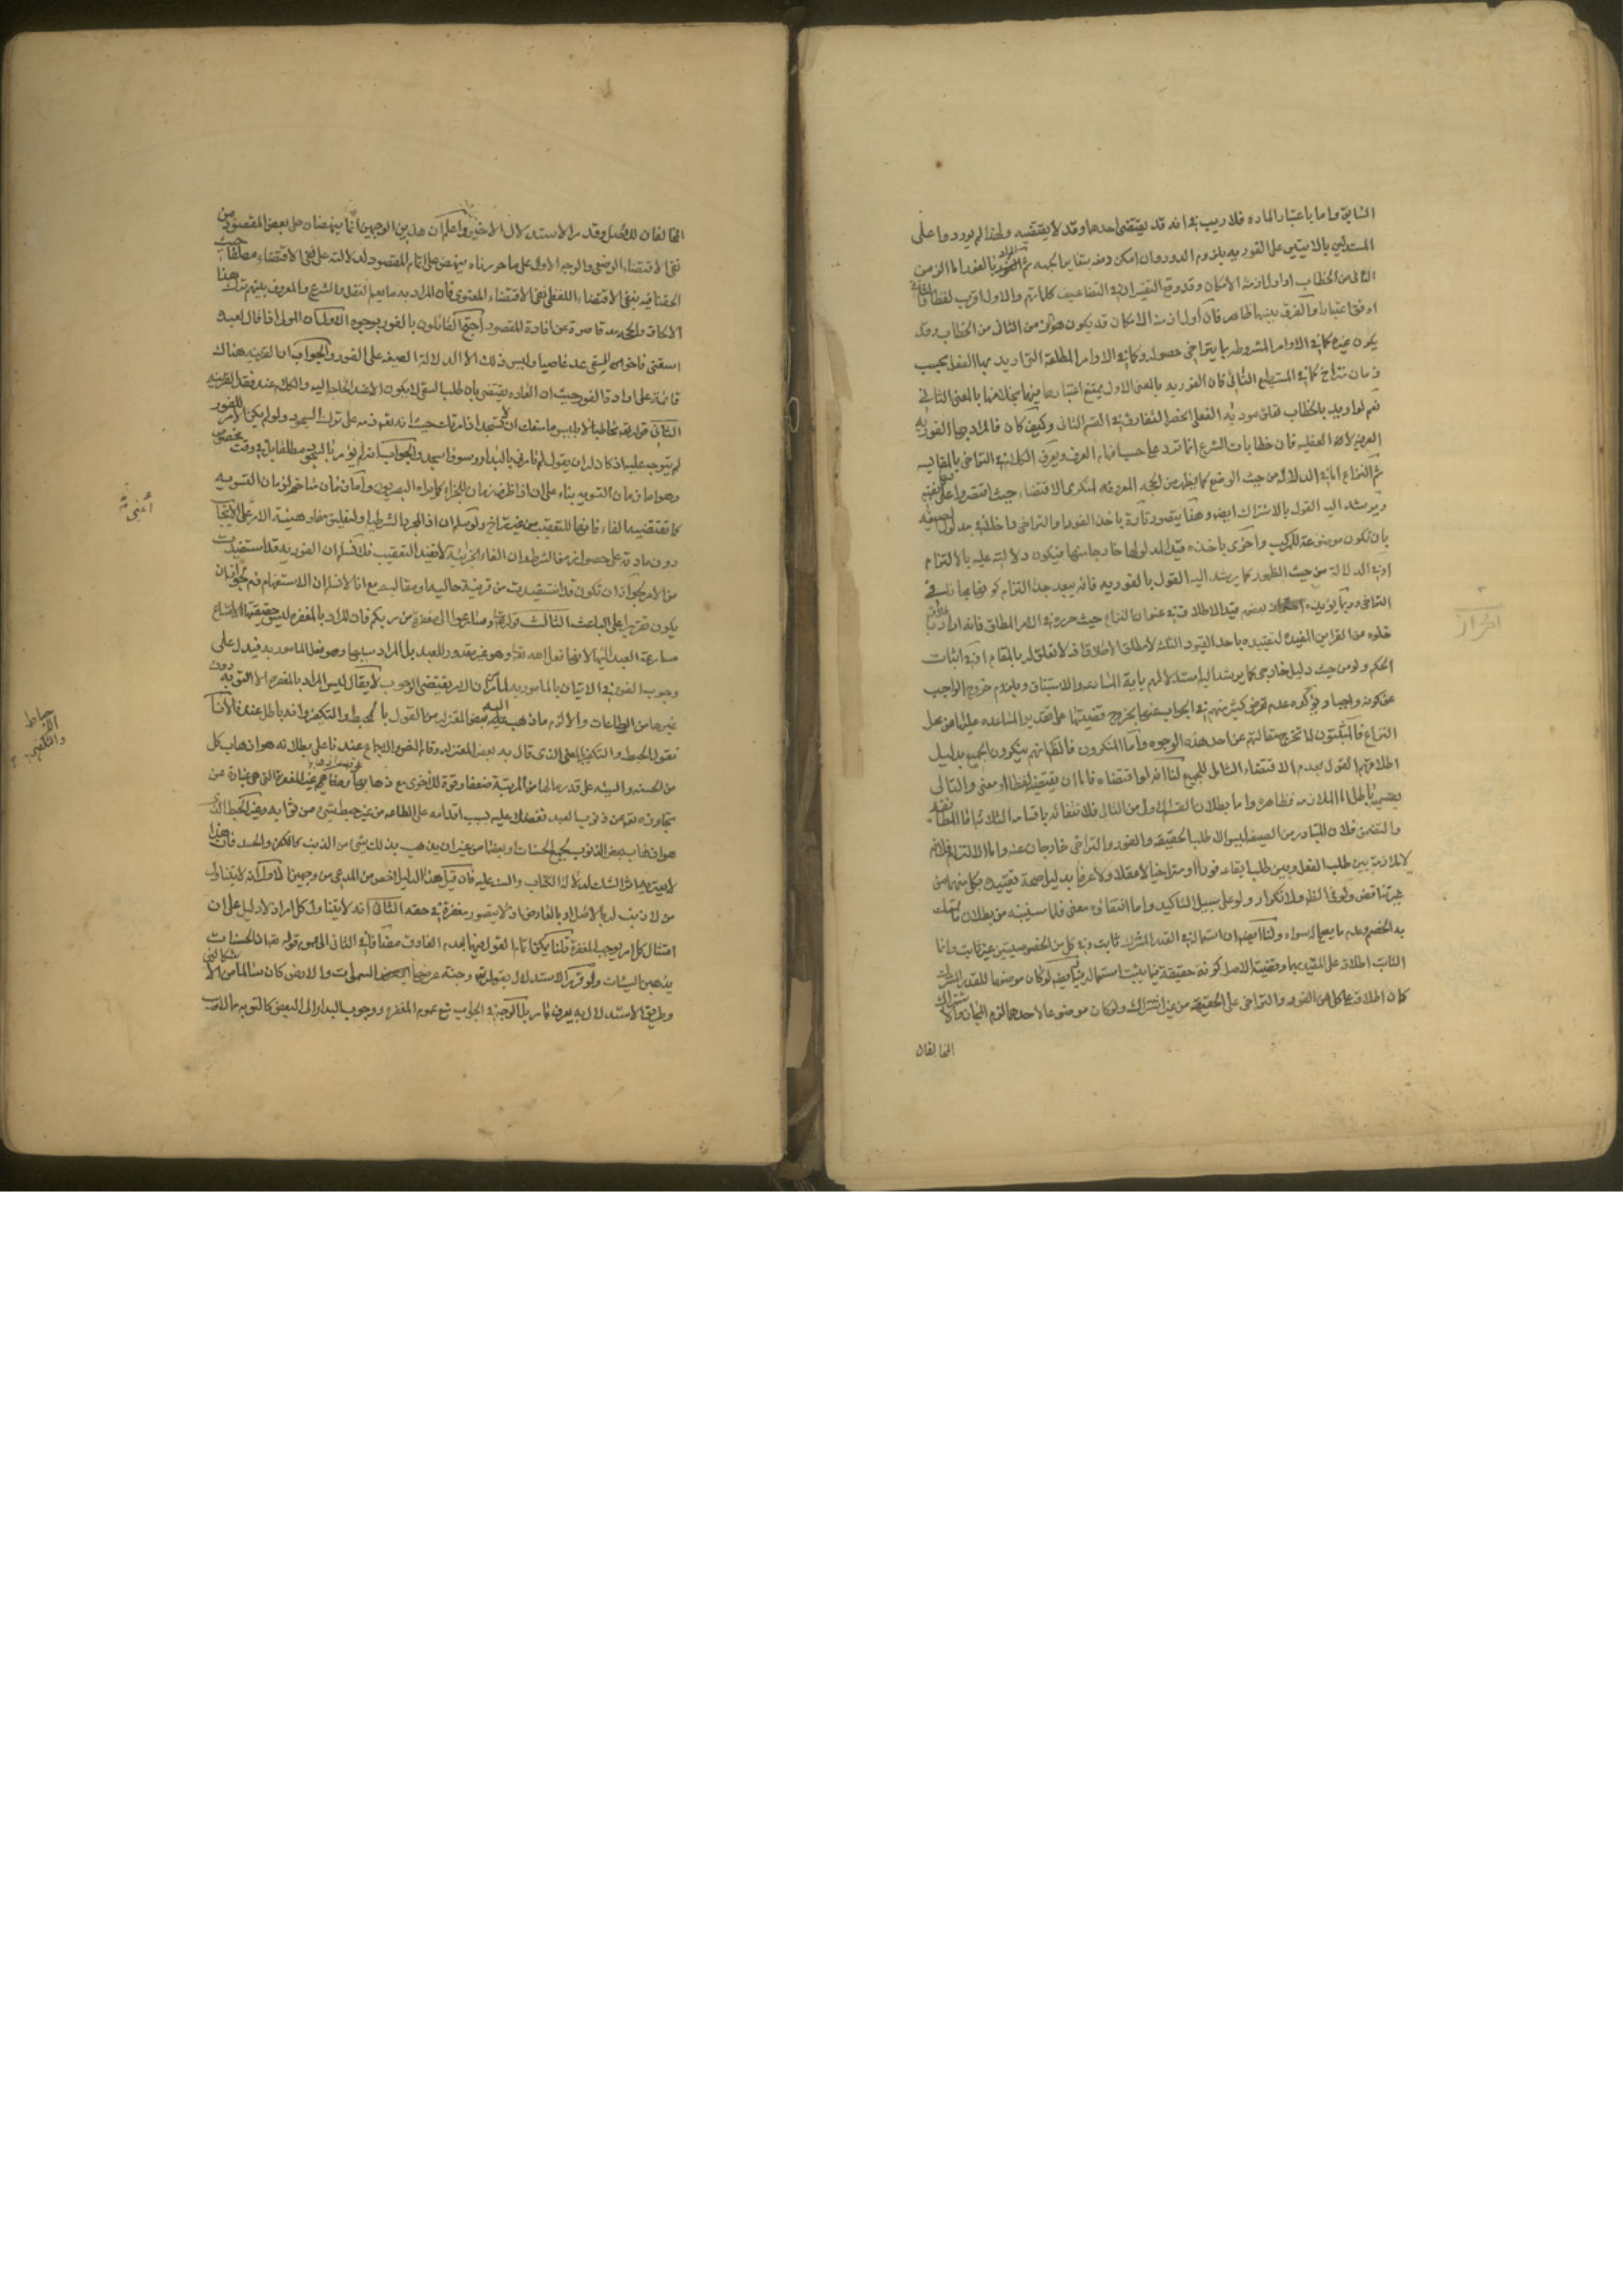 السابقة واما باعتبار الماده فلا ريب في انه قد يقتضى احدها وقد لا يقتضيه ولهذا لم يوردوا على
المستدلين بالايتين على الفوريه بلزوم الدور وان امكن دفعه بتغاير الجهه ثم المراد بالفور اما الزمن
الثانى من الخطاب او اول ازمنة الامكان وقد وقع التفسيران في التضاعيف كلماتهم والاول اقرب لفظا والثانى
اوفق اعتبارا والفرق بينهما ظاهر فان اول ازمنة الامكان قد يكون هو الزمن الثانى من الخطاب وقد
يكون غيره كما في الاوامر المشروطه بما يتراخى حصوله وكما في الاوامر المطلقة التى اريد بها الفعل بحسب
زمان متراخ كما في المستطيع النائى فان الفوريه بالمعنى الاول يمتنع اعتبارها فيها بخلافها بالمعنى الثانى
نعم لو اريد بالخطاب تعلق مؤديه الفعلى انحصر التفارق في القسم الثانى وكيف كان فالمراد بها الفوريه
العرفية لا العقليه فان خطابات الشرع انما ترد على حسب افهام العرف ويعرف الكلام في التراخى بالمقايسه
ثم النزاع اما في الدلالة من حيث الوضع كما يظهر من الحجه المعروفه لمنكرى الاقتضاء حيث اقتصروا على نفيها
ويرشد اليه القول بالاشتراك ايضا وهذا يتصور تارة باخذ الفور او التراخى داخلا في مدلول الصيغه
بان تكون موضوعة للمركب واخرى باخذه قيدا لمدلولها خارجا منها فيكون دلالته عليه بالالتزام
او في الدلالة من حيث الظهور كما يرشد اليه القول بالفوريه فانه يبعد جدا التزام كونها مجازا في
التراخى وربما يؤيده اخذ بعضهم قيد الاطلاق في عنوان النزاع حيث حرره في الامر المطلق فانه اراد بالاطلاق
خلوه من القراين المفيدة لتقييده باحد القيود الثلثة لا مطلق الاطلاق اذ لا تعلق له بالمقام او في اثبات
الحكم ولو من حيث دليل خارجى كما يرشد اليه استدلالهم باية المسارعه والاستباق ويلزم خروج الواجب
عن كونه واجبا ويؤكده عدم تعرض كثير منهم في الجواب عنها بخروج قضيتها على تقدير المساعده عليها عن محل
النزاع فالمثبتون لا تخرج مقالتهم عن احد هذه الوجوه واما المنكرون فالظاهر انهم ينكرون الجميع بدليل
اطلاقهم القول بعدم الاقتضاء الشامل للجميع لنا انه لو اقتضاه فاما ان يقتضيه لفظا او معنى والتالى
بقسميه باطل اما الملازمه فظاهره واما بطلان القسم الاول من التالى فلانتفائه باقسامه الثلاثه اما المطابقه
والتضمن فلان المتبادر من الصيغه ليس الا طلب الحقيقه والفور والتراخى خارجان عنه واما الالتزام فلانه
لا ملازمة بين طلب الفعل وبين طلب ايقاعه فورا او متراخيا لا عقلا ولا عرفا بدليل صحة تقييده بكل منهما من
غير تناقض ولو في الظهر ولا تكرار ولو على سبيل التاكيد واما انتفاؤه معنى فلما سنبينه من بطلان ما تمسك
به الخصم وعدم ما يصلح له سواه ولنا ايضا ان استعماله في القدر المشترك ثابت وفي كل من الخصوصيتين غير ثابت وانما
الثابت اطلاقه على المقيد بهما وقضية الاصل كونه حقيقة فيما يثبت استعماله فيه وايضا لو كان موضوعا للقدر المشترك
كان اطلاقه على كل من الفور والتراخى على الحقيقه من غير اشتراك ولو كان موضوعا لاحدهما لزم المجاز والاشتراك
المخالفان
احراز
المخالفان للاصل وقد مر الاستدلال الاخير واعلم ان هذين الوجهين انما ينهضان على بعض المقصود من
نفى الاقتضاء الوضعى والوجه الاول على ما حررناه ينهض على تمام المقصود لدلالته على نفى الاقتضاء مطلقا حيث
الحقنا فيه بنفى الاقتضاء اللفظى نفى الاقتضاء المعنوى فان المراد به ما يعم العقل والشرع والمعروف بينهم ترك هذا
الالحاق فالحجه قاصرة عن افادة المقصود احتج القائلون بالفور بوجوه الاول ان المولى اذا قال لعبده
اسقنى فاخر السقى عد عاصيا وليس ذلك الا لدلالة الصيغه على الفور والجواب ان القرينه هناك
قائمة على ارادة الفور حيث ان العاده يقتضى بان طلب السقى لا يكون الا عند الحاجه اليه والكلام عند فقد القرينه
الثانى قوله تعالى مخاطبا لابليس ما منعك ان لا تسجد اذ امرتك حيث انه تعالى ذمه على ترك السجود ولو لم يكن الامر للفور
لم يتوجه عليه اذ كان له ان يقول لم تامرنى بالبدار وسوف اسجد والجواب انه لم يؤمر بالسجود مطلقا بل في وقت مخصوص
وهو اما زمان التسويه بناء على ان اذا ظرف زمان للجزاء كما يراه البصريون واما زمان متاخر لزمان التسويه
كما تقتضيه الفاء فانها للتعقيب من غير تراخ ولو سلم ان اذا لمجرد الشرطيه ولتعليق مفاد هيئة الامر على الايجاب
دون مادته على حصول امر في الشرط وان الفاء الجزائية لا تفيد التعقيب فلا نسلم ان الفوريه قد استفيدت
من الامر لجواز ان تكون قد استفيدت من قرينة حاليه او مقاليه مع انا لا نسلم ان الاستفهام ذم لجواز ان
يكون تقريرا على الباعث الثالث قوله تعالى وسارعوا الى مغفرة من ربكم فان المراد بالمغفره ليس حقيقتها لامتناع
مسارعة العبد اليها لانها فعل الله تعالى وهو غير مقدور للعبد بل المراد سببها وهو فعل المامور به فيدل على
وجوب الفور في الاتيان بالمامور به لما مر ان الامر يقتضى الوجوب لا يقال ليس المراد بالمغفره الا التوبه دون
غيرها من الطاعات والا لزم ما ذهب اليه بعض المعتزله من القول بالحبط والتكفير وانه باطل عندنا لانا
نقول الحبط والتكفير بالمعنى الذى قال به بعض المعتزله وقام الضرورة والاجماع عندنا على بطلانه هو اذهاب كل
من الحسنه والسيئه على قدر مالها من المرتبة ضعفا وقوة للاخرى مع ذهابها بها وهذا غير المغفرة التى هى عبارة عن
تجاوزه تعالى عن ذنوب العبد تفضلا عليه بسبب اقدامه على الطاعه من غير حبط شىء من ثوابه وغير الحبط الذى
هو اذهاب بعض الذنوب لجميع الحسنات او بعضها من غير ان يذهب بذلك شىء من الذنب كالكفر والحسد فان هذا
لا يعتريهما شائبة الشك لدلالة الكتاب والسنه عليه فان قيل هذا الدليل اخص من المدعى من وجهين الاول انه لا يتناول
من لا ذنب له بالاصل او بالعارض اذ لا يتصور مغفرة في حقه الثانى انه لا يتناول كل امر اذ لا دليل على ان
امتثال كل امر يوجب المغفرة قلنا يمكن اتمام القول فيهما بعدم الفارق مضافا في الثانى الى عموم قوله تعالى ان الحسنات
يذهبن السيئات ولو قرر الاستدلال بقوله تعالى وجنة عرضها السموات والارض كان سالما من الاشكالين
وطريق الاستدلال به يعرف مما مر بل الوجه في الجواب منع عموم المغفره ووجوب البدار الى البعض كالتوبه مما لا ريب
أعنى
الاحباط
والتكفير